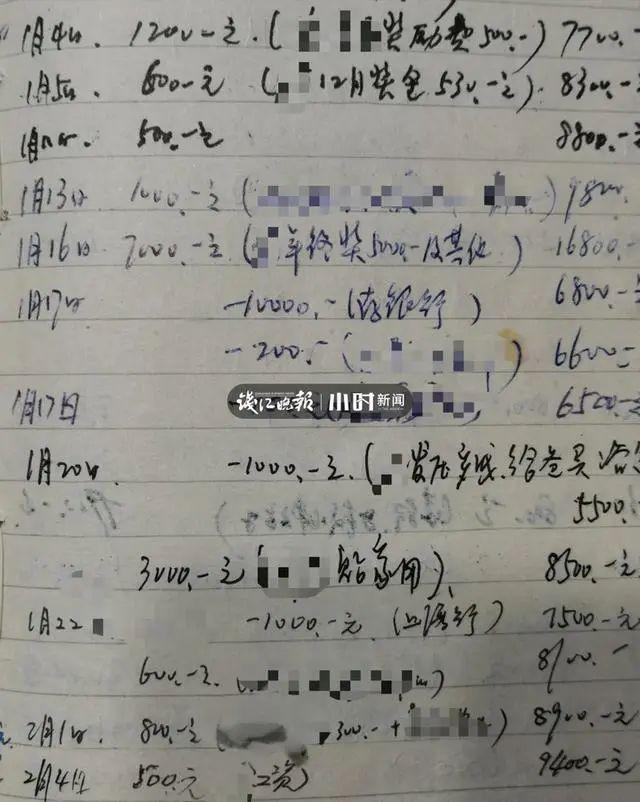 1月4日. 1200.-元.(奖励费500.-) 7700.-
1月5日. 600.-元 (12月奖金530.-元) 8300.-元
500.-元 8800.-元
1月13日 1000.-元 ( ) 9800.-
1月16日 7000.-元 (年终奖5000.-及其他) 16800.-
1月17日 -10000.- (存银行) 6800.-元
-200.- ( ) 6600.-
钱江晚报 小时新闻
1月17日 6500.-元
1月20日 -1000.-元.(发压岁钱.给
5500.-
3000.-元 (贴家用) 8500.-元
1月22 -1000.-元 7500.-元
600.-元. ( ) 8100.-
2月1日. 820.-元 ( 300.-+ ) 8900.-元
2月4日 500.元 工资) 9400.-元